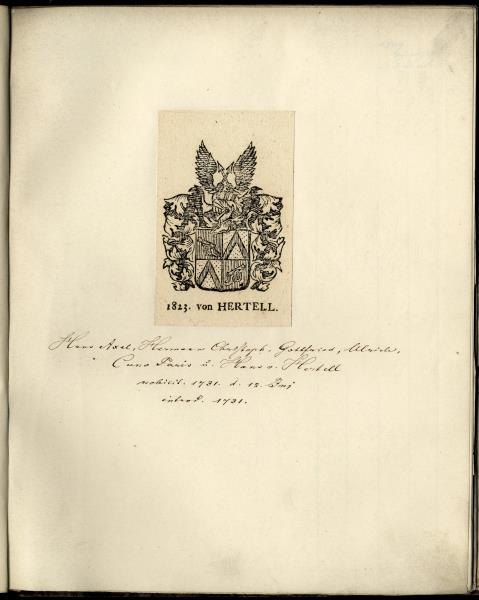 1823. von HERTELL.
Hans Axel, Herman Christoph, Gottfried, Ulrich,
Cuno Paris u. Hans v. Hertell
nobilit. 1731. d. 12. Junj
introd. 1731.